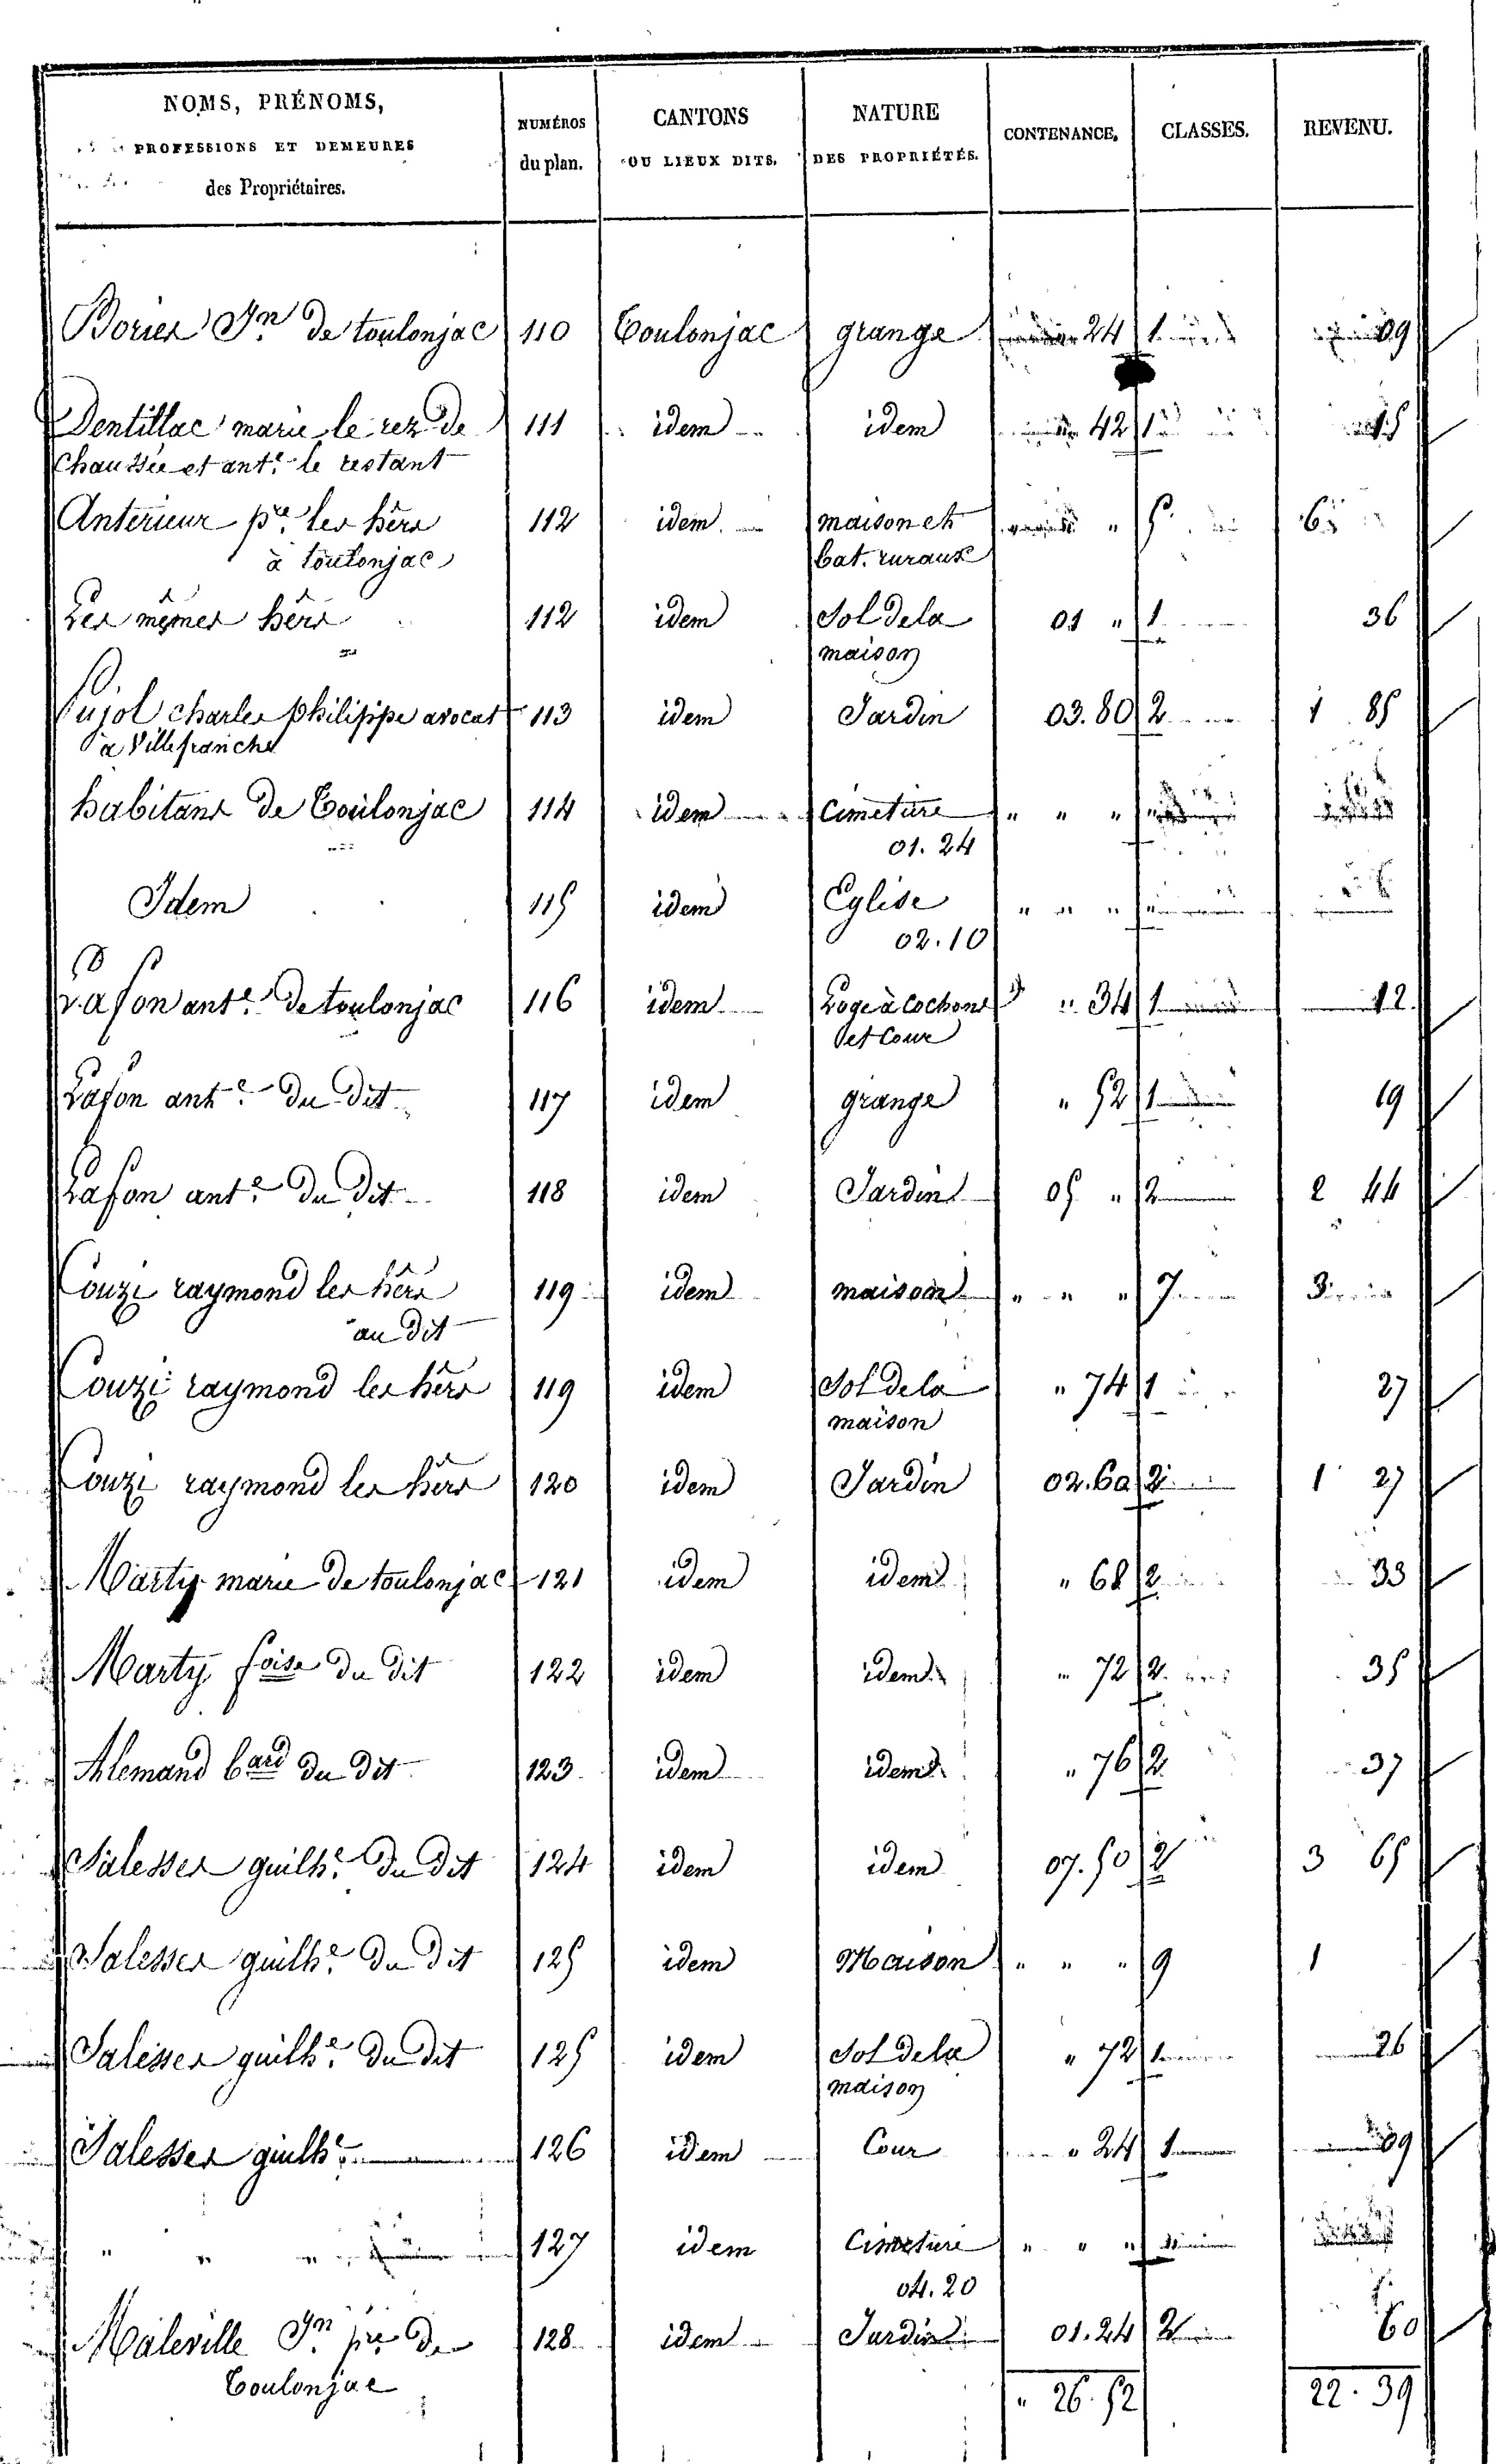 NOMS, PRÉNOMS,
PROFESSIONS ET DEMEURES
des Propriétaires.
NUMÉROS
du plan.
CANTONS
OU LIEUX DITS.
NATURE
DES PROPRIÉTÉS.
CONTENANCE.
CLASSES.
REVENU.
Bories Jn de toulonjac 110 Toulonjac grange 24 1 09
Dentillac marie le rez de 111 idem idem 42 1 15
chaussée et ante le restant
Anterieur pre les hérs 112 idem maison et " 5 6
à toulonjac bat. ruraux
Les mêmes hérs 112 idem Sol de la 01 " 1 36
maison
Pujol charles philippe avocat 113 idem Jardin 03.80 2 1 85
à Villefranche
habitans de Toulonjac 114 idem Cimetiere " " "
01.24
Idem 115 idem Eglise " " "
02.10
Lafon ante de toulonjac 116 idem Loge à cochons " 34 1 12
et Cour
Lafon ante du dit 117 idem grange " 52 1 19
Lafon ante du dit 118 idem Jardin 05 " 2 2 44
Couzi raymond les hérs 119 idem maison " " " 7 3
au dit
Couzi raymond les hérs 119 idem Sol de la " 74 1 27
maison
Couzi raymond les hérs 120 idem Jardin 02.60 2 1 27
Marty marie de toulonjac 121 idem idem " 68 2 33
Marty foise du dit 122 idem idem " 72 2 35
Alemand bard du dit 123 idem idem " 76 2 37
Salesses guilhe du dit 124 idem idem 07.50 2 3 65
Salesses guilhe du dit 125 idem Maison " " " 9 1
Salesses guilhe du dit 125 idem Sol de la " 72 1 26
maison
Salesses guilhe 126 idem Cour " 24 1 09
" " " 127 idem Cimetiere " " "
04.20
Maleville Jn pre de 128 idem Jardin 01.24 2 60
Toulonjac
" 26.52 22.39